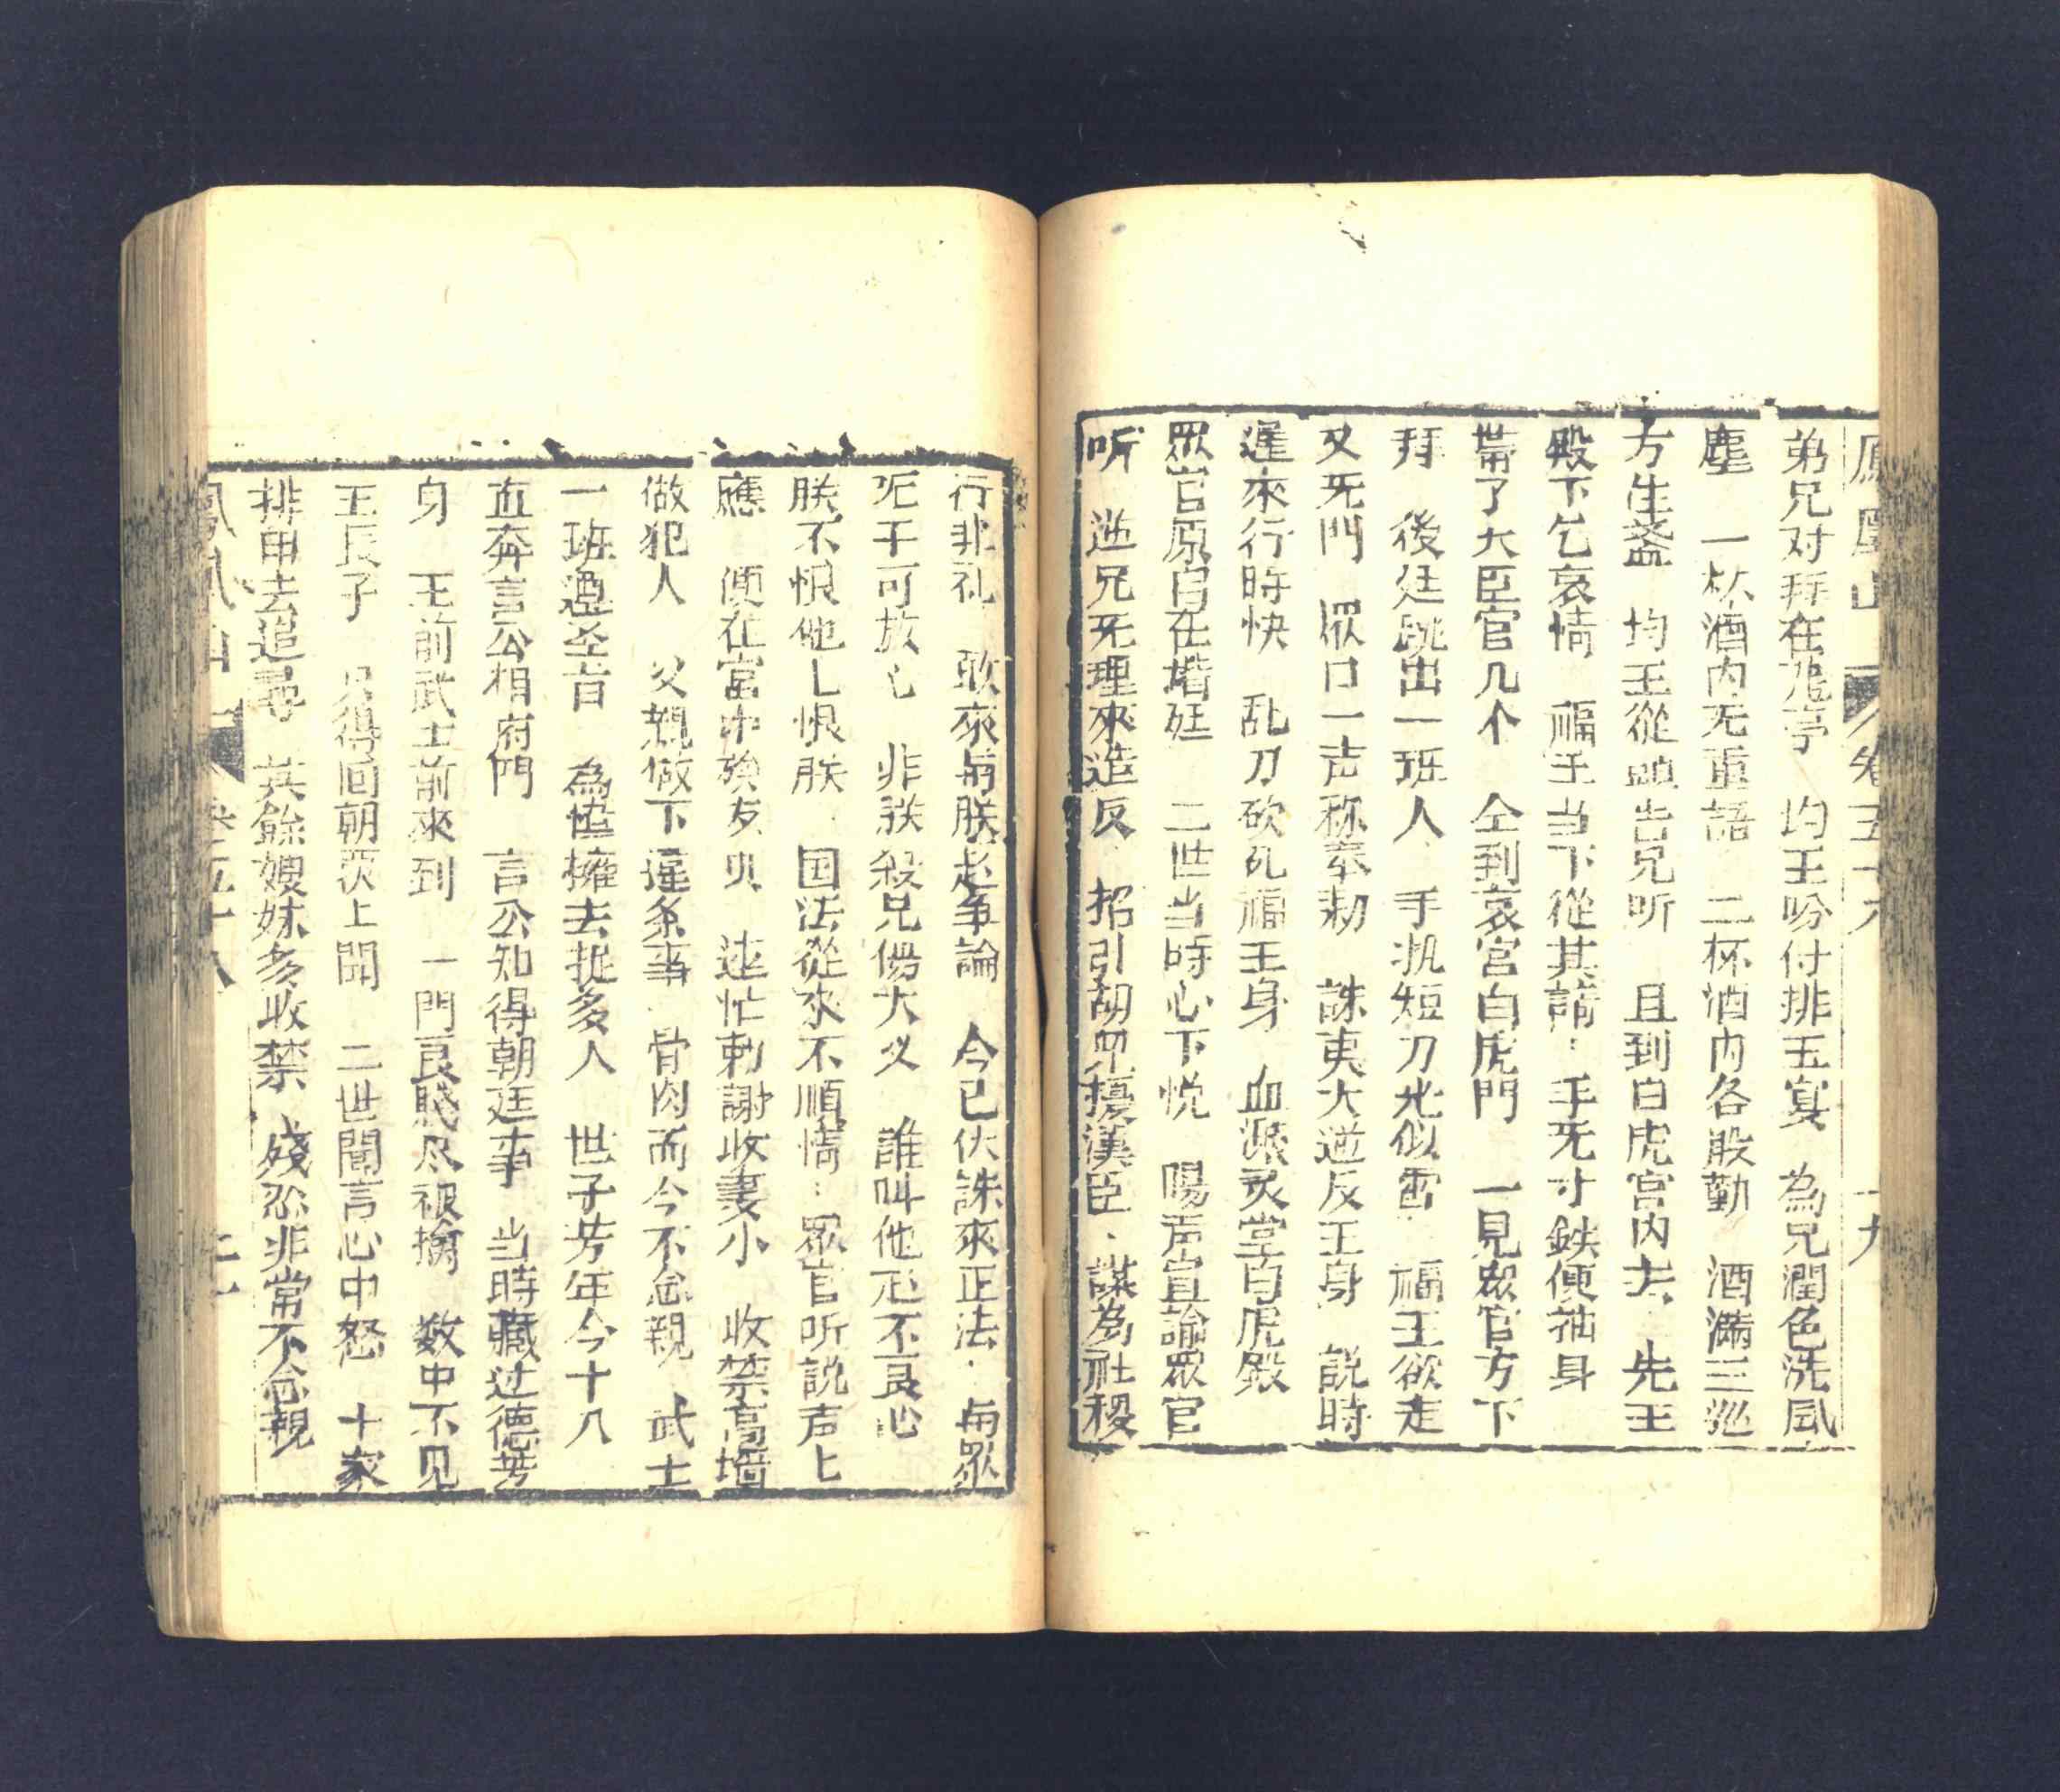 鳳凰山 卷五十八 十九
弟兄对拜在凉亭 均王吩付排玉宴 為兄潤色洗風
塵 一杯酒内无重語 二杯酒内各殷勤 酒满三廵
方生盞 均王從頭告兄听 且到白虎宫内去 先王
殿下乞哀情 福王当下從其請 手无寸鉄便袖身
帶了大臣官几个 仝到哀宫白虎門 一見眾官方下
拜 後廷跳出一班人 手执短刀光似雪 福王欲走
又无門 眾口一声称奉勅 誅夷大逆反王身 説時
遲來行時快 乱刀砍死福王身 血濺灵堂白虎殿
眾官原自在堦廷 二世当時心下悦 陽声宣諭眾官
听 逆兄无理來造反 招引胡兵擾漢臣 謀為社稷
行非礼 敢來与朕起争論 今已伏誅來正法 与眾
无干可放心 非朕殺兄傷大义 誰叫他心不良心
朕不恨他他恨朕 国法從來不順情 眾官听説声上
應 便在宫中殮友 速忙剌謝收妻小 收禁高墙
做犯人 父親做下違条事 骨肉而今不念親 武士
一班遵圣旨 為擒擁去捉多人 世子芳年今十八
血奔言公相府門 言公知得朝廷事 当時藏过德芳
身 王前武士前來到 一門良賤尽被擒 数中不见
王長子 只得回朝荻上聞 二世聞言心中怒 十家
排甲去追尋 其餘嫂妹多收禁 殘忍非常不念親
鳳凰山 卷五十八 二十